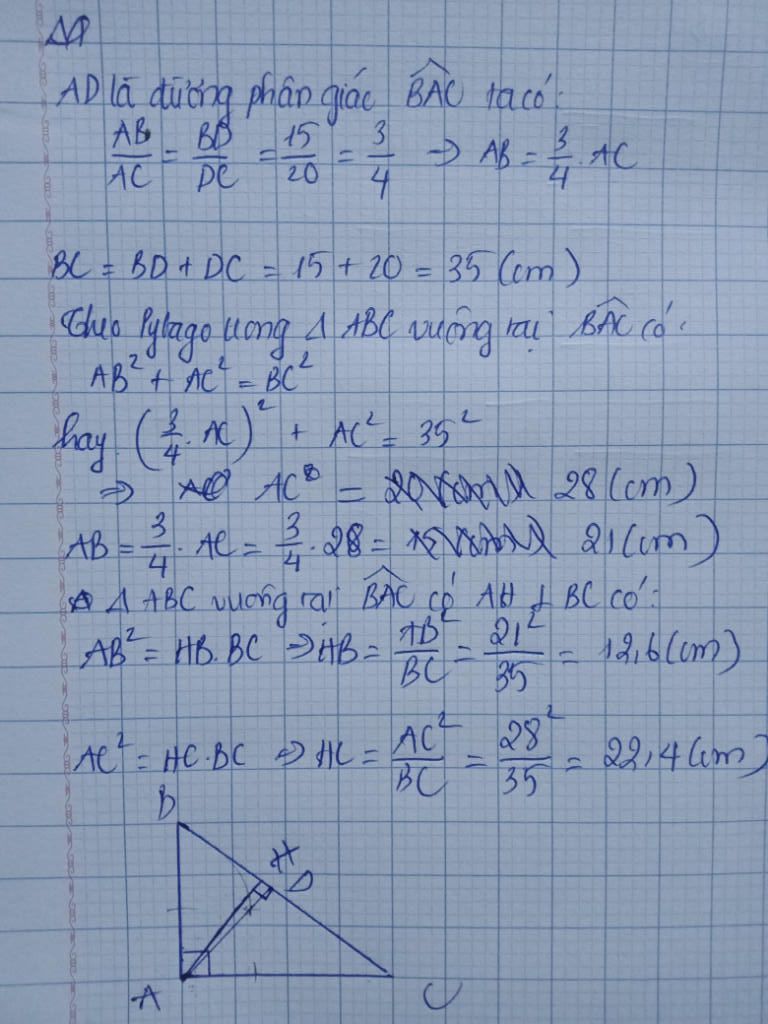 AD là đường phân giác BAC ta có:
AB/AC = BD/DC = 15/20 = 3/4 => AB = 3/4 . AC
BC = BD + DC = 15 + 20 = 35 (cm)
Theo Pytago trong Δ ABC vuông tại BAC có:
AB² + AC² = BC²
hay (3/4 . AC)² + AC² = 35²
=> AC = 28 (cm)
AB = 3/4 . AC = 3/4 . 28 = 21 (cm)
Δ ABC vuông tại BAC có AH ⊥ BC có:
AB² = HB.BC => HB = AB²/BC = 21²/35 = 12,6 (cm)
AC² = HC.BC => HC = AC²/BC = 28²/35 = 22,4 (cm)
B
H
D
A C